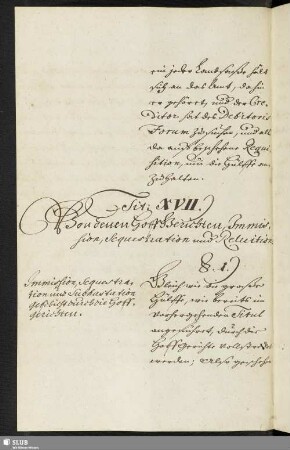 ein jeder Landsasse hält
sich an das Amt, dahin
er gehöret, und der Cre-
ditor hat des Debitoris
Forum zu suchen, und all
da auf beschehene Requi-
sition, um die Hülffe an
zuhalten.
Tit: XVII.
Von denen Hoff Gerichten, Immis-
sion, Sequestration und Reluition
§. 1.
Immission, Sequestra-
tion und Subhastation
geschiehet durch die Hoff-
gerichten.
Gleich wie die
Hülffe, wie bereits in
vorhergehenden Titul
angeführet, durch die
Hoff Gerichte vollstrecket
werden; Also geschehe
SLUB